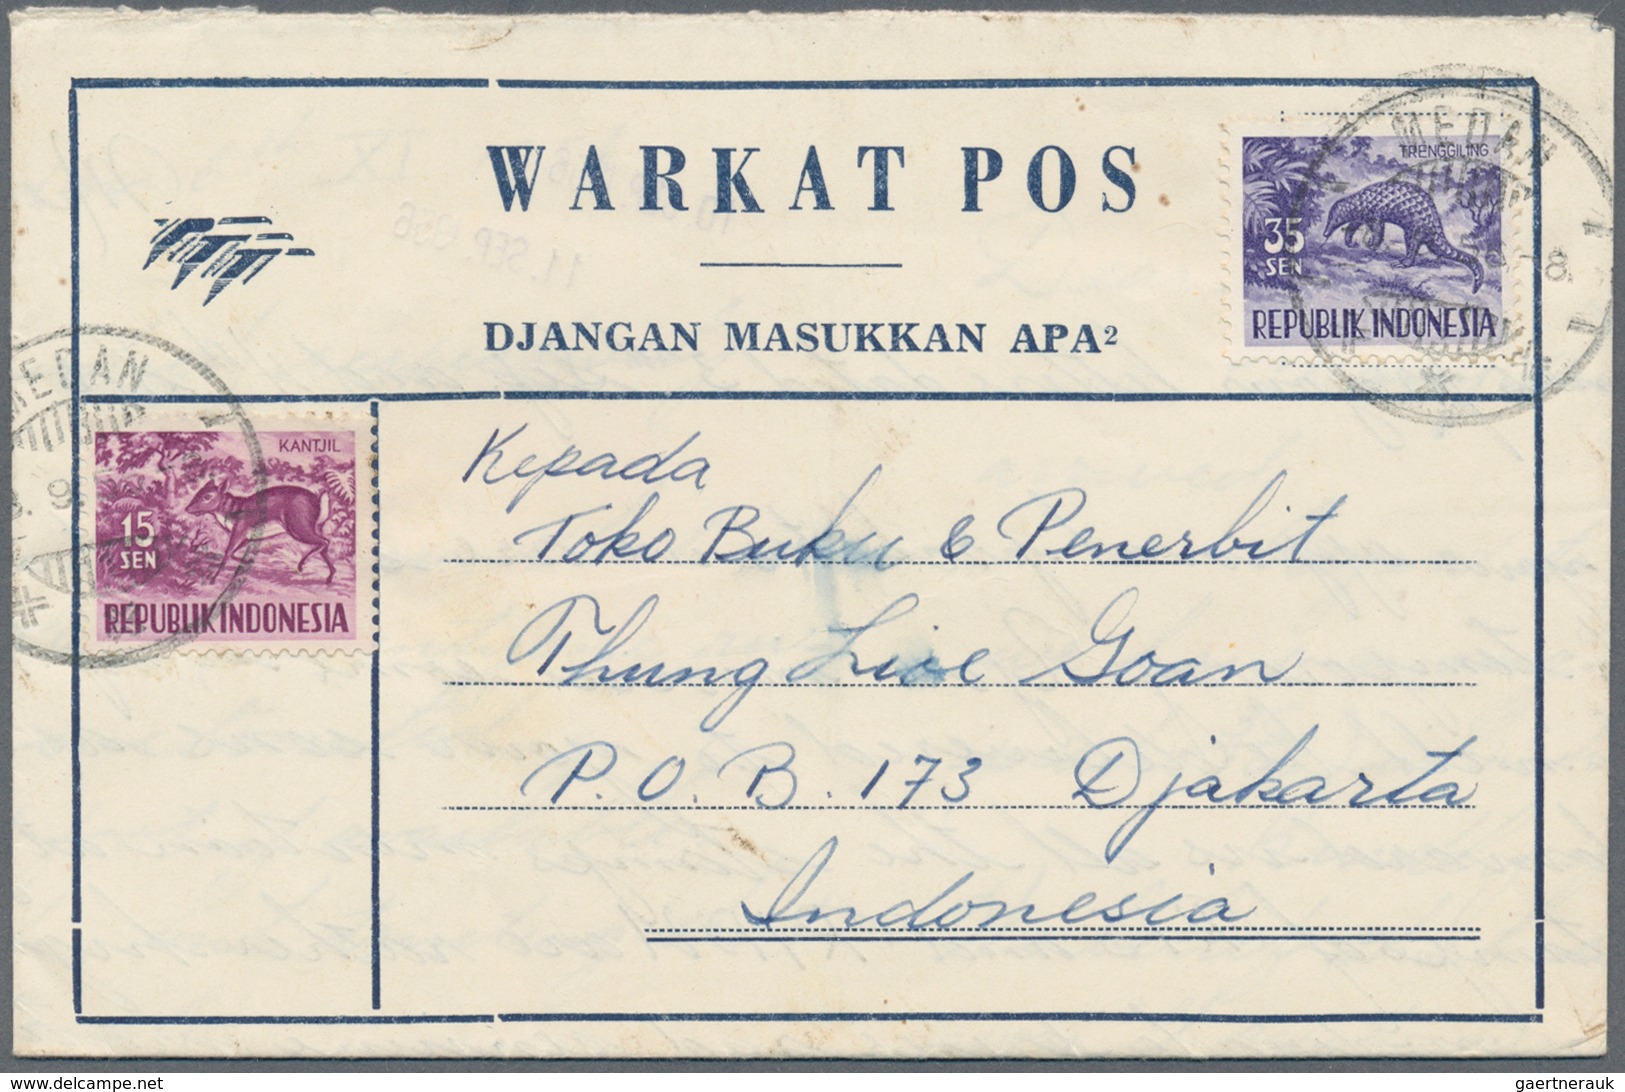 WARKAT POS
DJANGAN MASUKKAN APA²
TRENGGILING
35
SEN
REPUBLIK INDONESIA
MEDAN
MEDAN
KANTJIL
15
SEN
REPUBLIK INDONESIA
11. SEP. 1956
Kepada
Toko Buku & Penerbit
Thung Lioe Goan
P.O.B. 173 Djakarta
Indonesia
gaertnerauk
gaertnerauk@delcampe.net